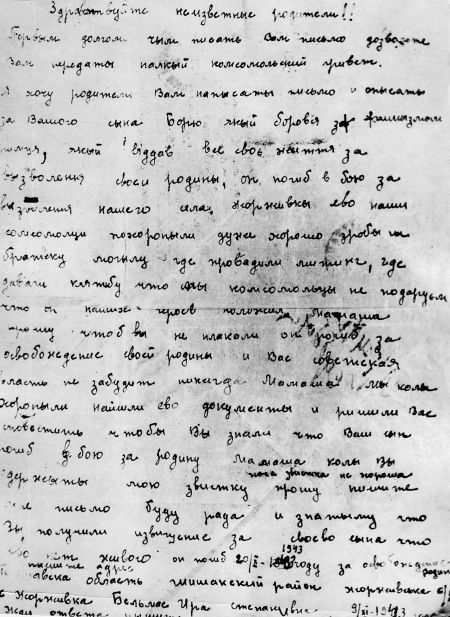 Здравствуйте неизвестные родители!!
Первым долгом чым писать Вам письмо дозвольте
Вам передаты палкый комсомольский привет.
Я хочу родители Вам написаты письмо и описаты
за Вашого сына Борю якый боровся за фашизмом
якый віддав все своє життя за
вызволення своєи родины, он погиб в бою за
вызволення нашего села. Жорнивкы ево наши
комсомолци похоронылы дуже хорошо зробылы
братску могылу где проводили митинг, где
давали клятбу что мы комсомольцы не подаруем
что он наших кров Мамаша
прошу чтоб вы не плакали он погиб за
освобождение своей родины и Вас советская
власть не забудит никогда Мамаша мы колы
хоронылы найшли ево документы и ришили Вас
сповістить чтобы Вы знали что Ваш сын
погиб в бою за родину Мамаша колы Вы
хоча звистка не хороша
держяты мою звистку прошу пишите
мне письмо буду рада и знатыму что
Вы получили извищение за своєво сына что
ево нет живого он погиб 20/ІХ-1943 году за освобождение родины
пишите адрес
область шишакский район жорнивська с/р
с Жорнивка Бельмас Ира степановна 9/ІІ-1943
ответа